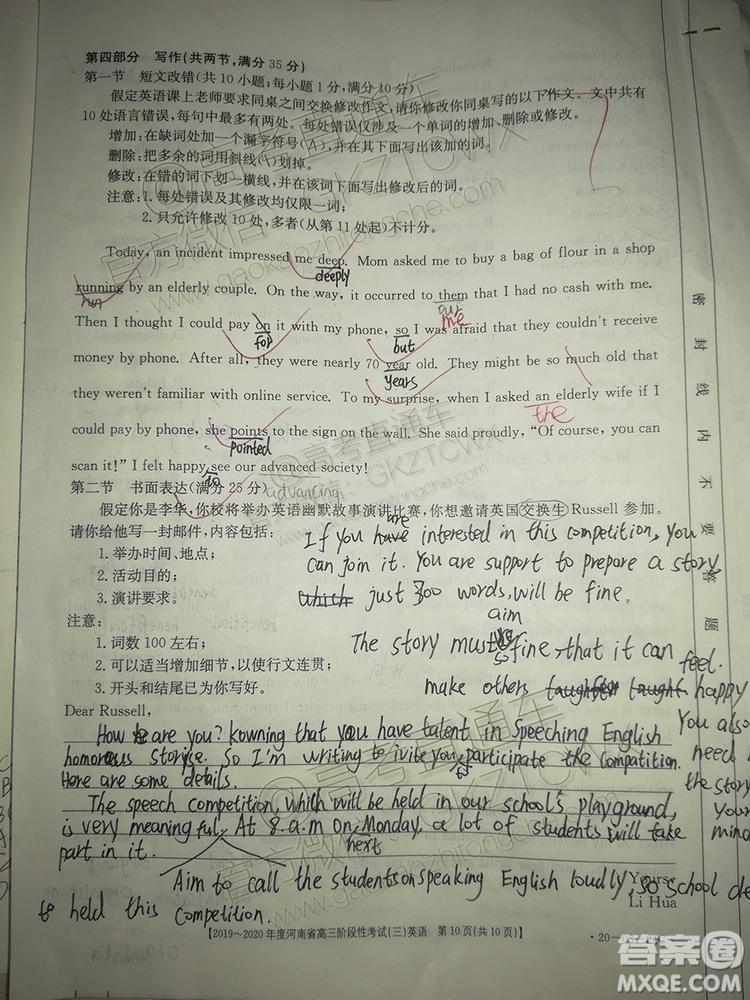 第四部分 写作(共两节,满分 35 分)
第一节 短文改错(共 10 小题;每小题 1 分,满分 10 分)
假定英语课上老师要求同桌之间交换修改作文,请你修改你同桌写的以下作文。文中共有
10 处语言错误,每句中最多有两处。每处错误仅涉及一个单词的增加、删除或修改。
增加:在缺词处加一个漏字符号(∧),并在其下面写出该加的词。
删除:把多余的词用斜线(\)划掉。
修改:在错的词下划一横线,并在该词下面写出修改后的词。
注意:1. 每处错误及其修改均仅限一词;
2. 只允许修改 10 处,多者(从第 11 处起)不计分。
Today, an incident impressed me deep. Mom asked me to buy a bag of flour in a shop
deeply
running by an elderly couple. On the way, it occurred to them that I had no cash with me.
run
our
me
Then I thought I could pay on it with my phone, so I was afraid that they couldn't receive
for
but
money by phone. After all, they were nearly 70 year old. They might be so much old that
years
they weren't familiar with online service. To my surprise, when I asked an elderly wife if I
the
could pay by phone, she points to the sign on the wall. She said proudly, "Of course, you can
pointed
scan it!" I felt happy see our advanced society!
to
advancing
第二节 书面表达(满分 25 分)
假定你是李华,你校将举办英语幽默故事演讲比赛,你想邀请英国交换生 Russell 参加。
请你给他写一封邮件,内容包括:
1. 举办时间、地点;
2. 活动目的;
3. 演讲要求。
注意:
1. 词数 100 左右;
2. 可以适当增加细节,以使行文连贯;
3. 开头和结尾已为你写好。
are
If you have interested in this competition, you
can join it. You are support to prepare a story
which just 300 words, will be fine.
aim
The story must so fine, that it can feel.
make others happy
You also
need
the story
your
mind
Dear Russell,
How are you? kowning that you have talent in Speeching English
homorous storise. So I'm writing to ivite you to participate the compatition.
Here are some details.
The speech competition, which will be held in our school's playground,
is very meaningful. At 8.a.m on Monday, a lot of students will take
next
part in it.
Aim to call the students on speaking English loudly, so school de
to held this competition.
Yours,
Li Hua
【2019~2020 年度河南省高三阶段性考试(三)英语 第 10 页(共 10 页)】
20-
密封线内不要答题
官方微信公众号:gaokaozhitongche.com
@高考直通车
GKZTCWX
答案圈
MXQE.COM